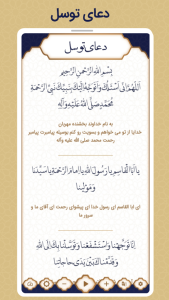 دعای توسل
دعای توسل
بِسْمِ اللهِ الرَّحْمنِ الرَّحيمِ
اَللّهُمَّ اِنّي اَسْئَلُكَ وَاَتَوَجَّهُ اِلَيْكَ بِنَبِيِّكَ نَبِيِّ الرَّحْمَةِ
مُحَمَّدٍ صَلَّى اللهُ عَلَيْهِ وَآلِهِ
به نام خداوند بخشنده مهربان
خدایا از تو می خواهم و بسویت رو کنم بوسیله پیامبرت پیامبر
رحمت محمد صلی الله علیه وآله
يا اَبَا الْقاسِمِ يا رَسُولَ اللهِ يا اِمامَ الرَّحْمَةِ يا سَيِّدَنا
وَمَوْلينا
ای ابا القاسم ای رسول خدا ای پیشوای رحمت ای آقای ما و
سرور ما
اِنّا تَوَجَّهْنا وَاسْتَشْفَعْنا وَتَوَسَّلْنا بِكَ اِلَى اللهِ
وَقَدَّمْناكَ بَيْنَ يَدَيْ حاجاتِنا